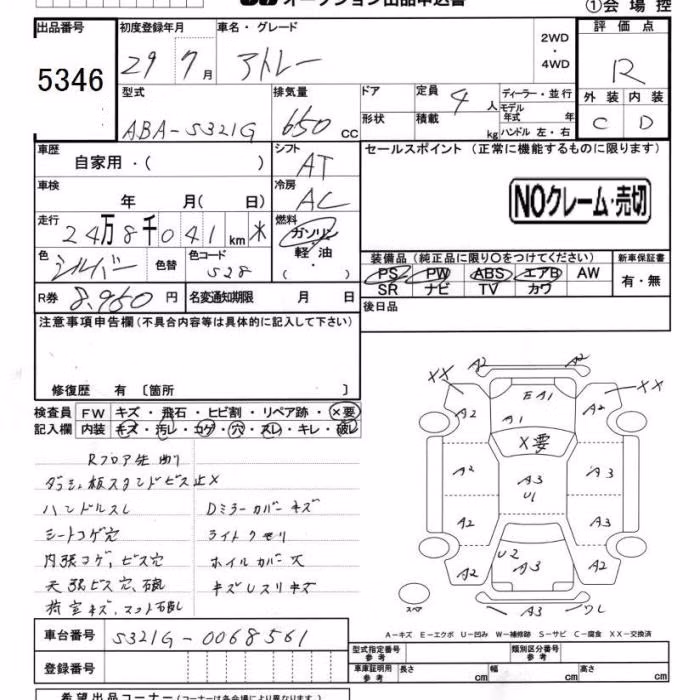 オークション出品申込書
①会場控
出品番号 5346
初度登録年月 29 7月
車名・グレード アトレー
2WD・4WD
評価点 R
外装 内装
C D
型式 ABA-S321G
排気量 650 cc
ドア
形状
定員 4 人
積載 kg
ディーラー・並行
モデル年式 年
ハンドル 左・右
車歴 自家用・( )
シフト AT
セールスポイント (正常に機能するものに限ります)
NOクレーム・売切
車検 年 月( 日)
冷房 AC
走行 24万8千041km
燃料 ガソリン 軽油 ( ・ )
色 シルバー 色替
色コード S28
装備品 (純正品に限り○をつけてください)
PS PW ABS エアB AW
SR ナビ TV カワ
新車保証書 有・無
R券 8,950円
名変通知期限 月 日
後日品
注意事項申告欄 (不具合内容等は具体的に記入して下さい)
修復歴 有 〔箇所 〕
検査員記入欄
FW キズ・飛石・ヒビ割・リペア跡・×要
内装 キズ・汚レ・コゲ・穴・スレ・キレ・破レ
ハンドルスレ
Dミラーカバーキズ
シートコゲ穴
ライトクモリ
内張コゲ、ビス穴
ホイルカバー欠
A2 A2
XX XX
A2 EA1 A2
A1
X要
A2 A3 A2
U1
A2 A3
A2 U2 A3 A2
スペア
A3
A-キズ E-エクボ U-凹み W-補修跡 S-サビ C-腐食 XX-交換済
車台番号 S321G-0068561
登録番号
型式指定番号 参考
類別区分番号 参考
車庫証明用 参考 長さ cm 幅 cm 高さ cm
希望出品コーナー (コーナーは各会場により異なります。)